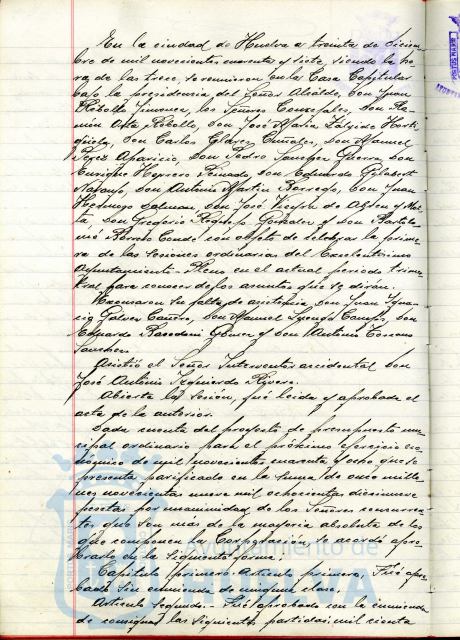 En la ciudad de Huelva a treinta de Diciem-
bre de mil novecientos cuarenta y siete, siendo la ho-
ra de las trece, se reunieron en la Casa Capitular
bajo la presidencia del Señor Alcalde, don Juan
Rebollo Jimenez, los Señores Concejales, don Ra-
món Rebollo, don José María
don Carlos don Manuel
Perez Aparicio, don Pedro Guerra, don
Enrique don Eduardo Gilabert
don Antonio Martin Borrego, don Juan
don José de
don Gregorio y don Bartolo-
mé Borrero Conde con objeto de celebrar la prime-
ra de las sesiones ordinarias del Excelentisimo
Ayuntamiento Pleno en el actual periodo trimes-
tral para conocer de los asuntos que se dirán.
Excusaron su falta de asistencia, don Juan Igna-
cio Galvez don Manuel don
Eduardo Gomez y don Antonio Toscano
Sanchez.
Asistió el Señor Interventor accidental don
José Antonio Izquierdo
Abierta la Sesión, fué leida y aprobada el
acta de la anterior.
Dada cuenta del proyecto de presupuesto mu-
nicipal ordinario para el próximo ejercicio eco-
nómico de mil novecientos cuarenta y ocho que se
presenta en la suma de once millo-
nes novecientas nueve mil ochocientas diecinueve
pesetas por unanimidad de los Señores concurren-
tes que son más de la mayoria absoluta de los
que componen la Corporación, se acordó apro-
barlo en la siguiente forma:
Capitulo primero Articulo primero, Fué apro-
bado sin enmienda de ninguna clase.
Articulo segundo.- Fué aprobado con la enmienda
de consignar las siguientes partidas: mil ciento
Ayuntamiento de
HUELVA